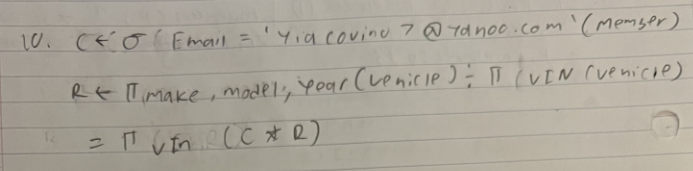 10. C ← σ ( Email = 'Yiacovino7@Yahoo.com' (Member)
R ← π make, model, year (vehicle) ÷ π (VIN (vehicle)
= π VIn (C * R)